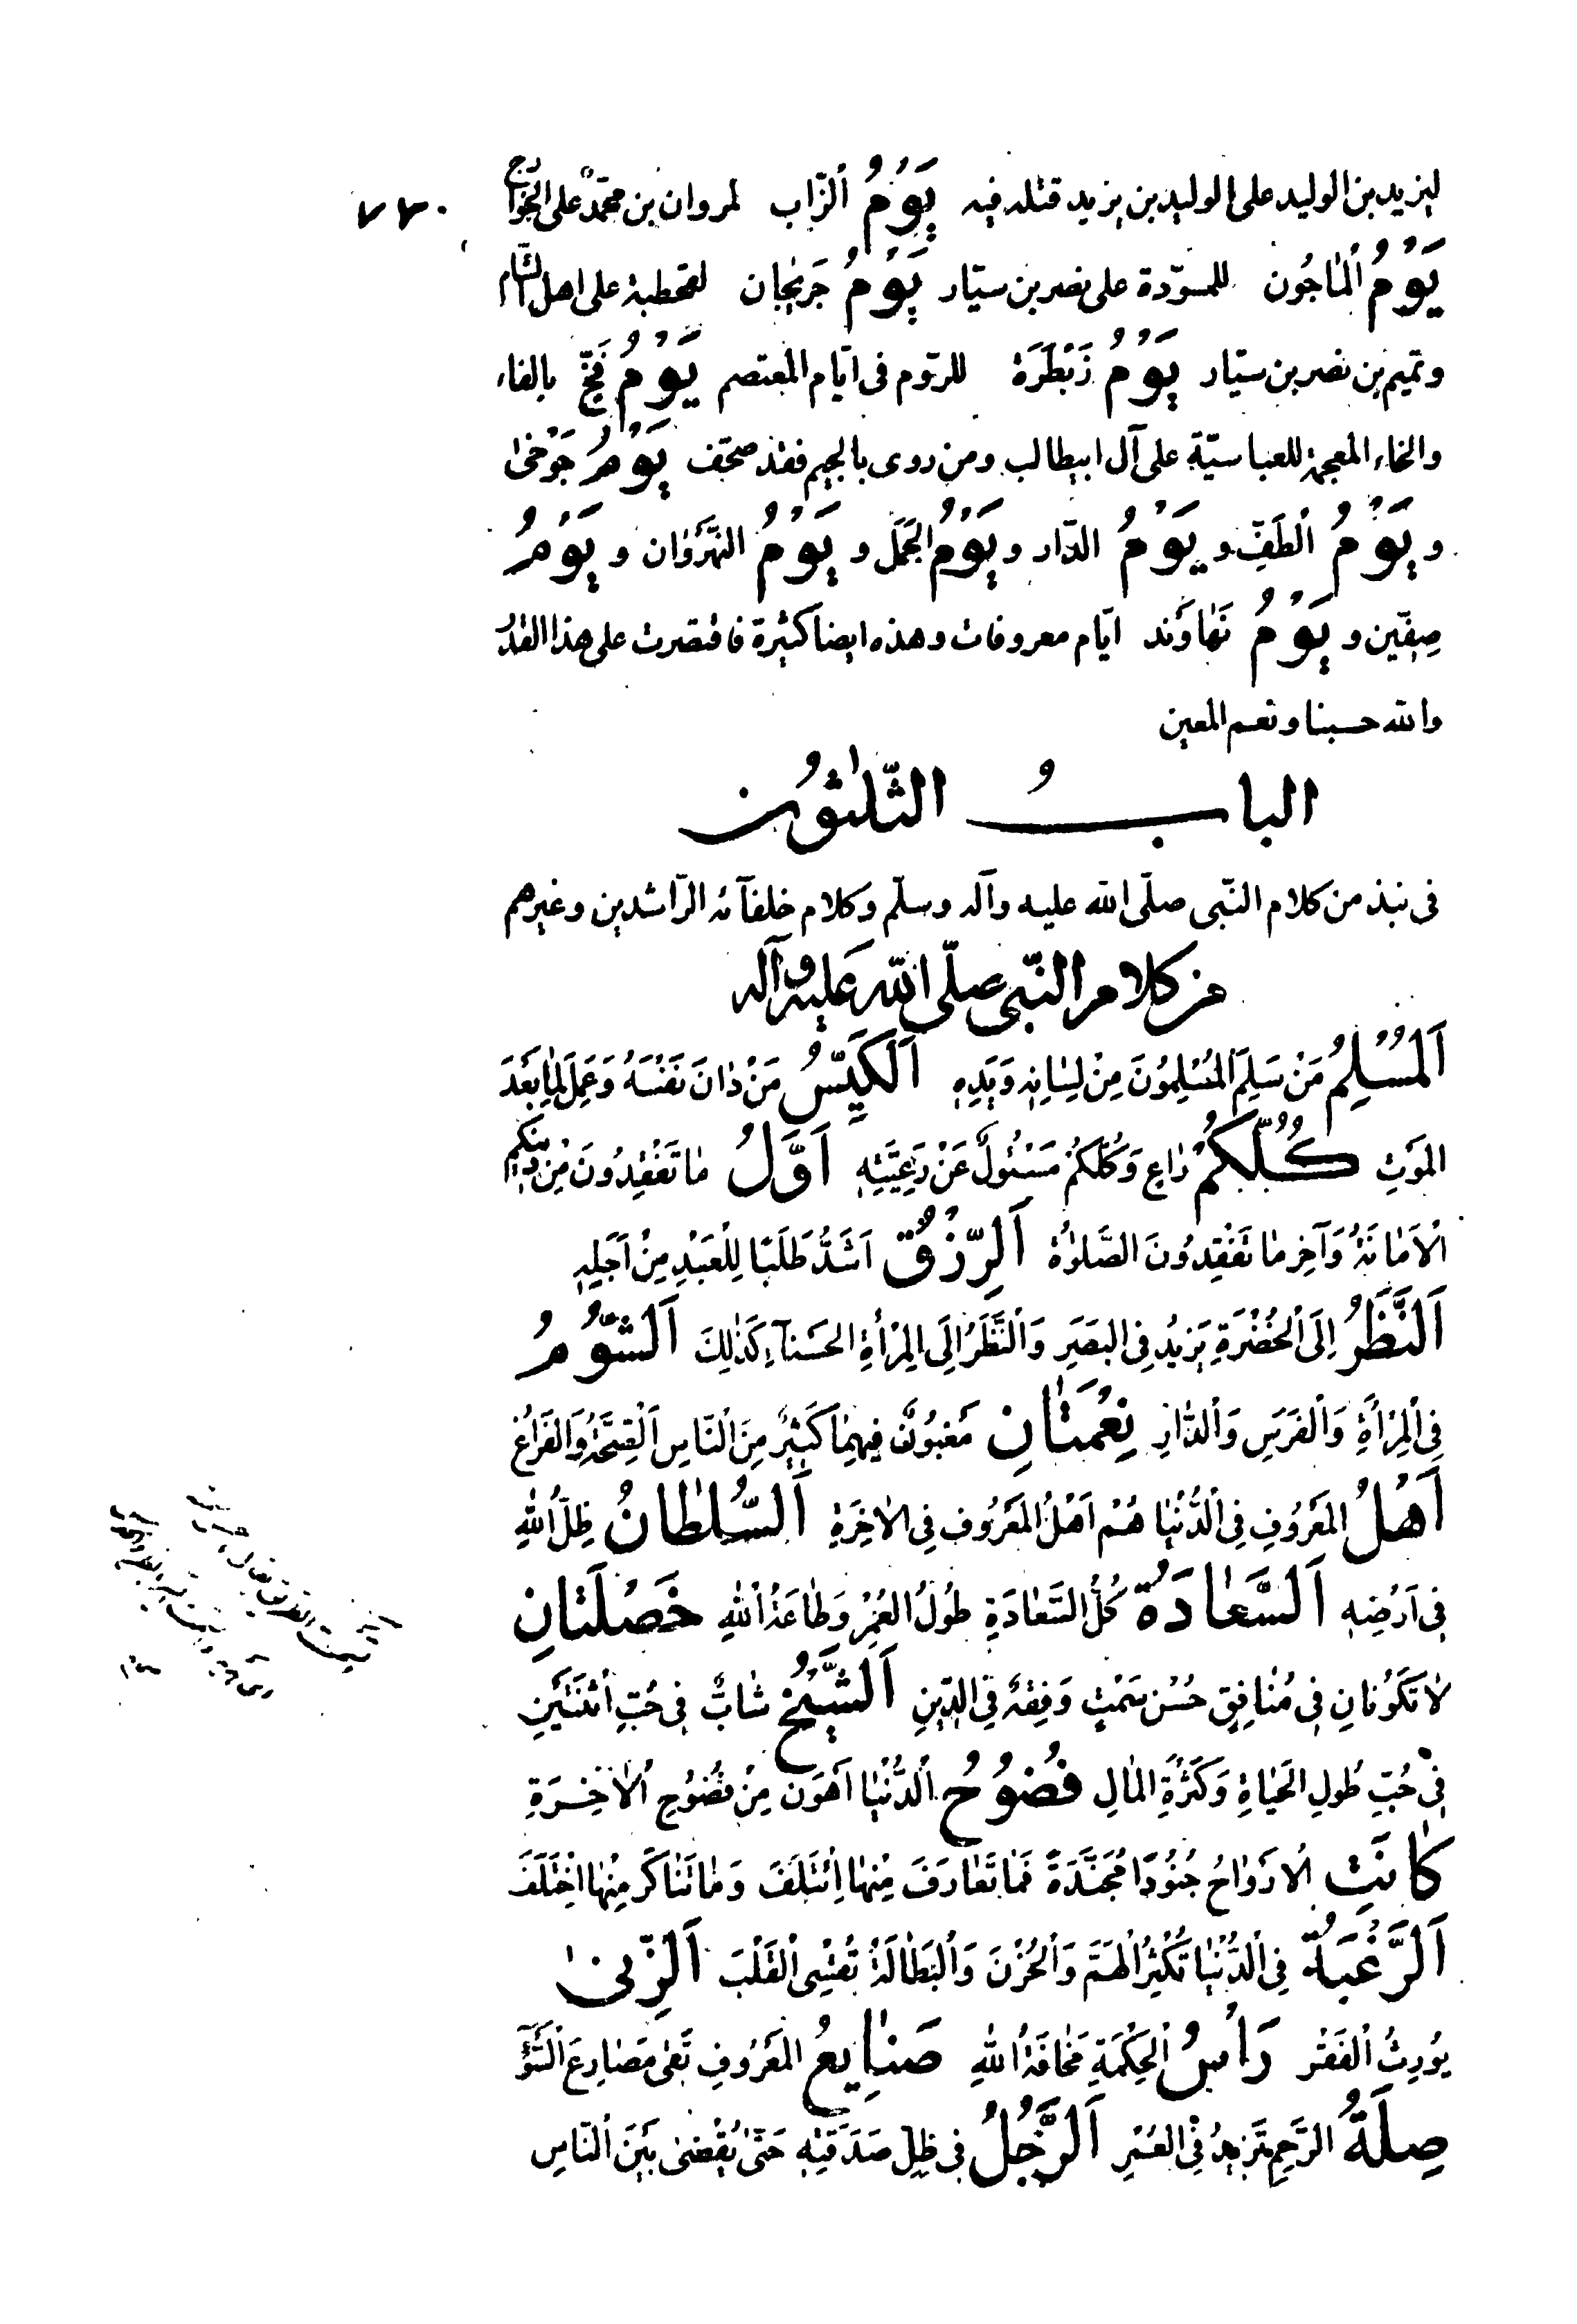 ليزيد بن الوليد على الوليد بن يزيد قتله فيه يَوْمُ ٱلزّاب لمروان بن محمّد على الخوارج
٧٧٠
يَوْمُ ٱلْمٰاجُون للمسوّدة على نصر بن سيّار يَوْمُ جَرنجٰان لقحطبة على اهل الشّام
وتميم بن نصر بن سيّار يَوْمُ زَبَطْرَة للرّوم فى ايّام المعتصم يَوْمُ فَخّ بالفاء
والخاء المعجمة للعباسيّة على آل ابيطالب ومن روى بالجيم فقد صحّف يَوْمُ جَوْخىٰ
و يَوْمُ ٱلْطَفِّ و يَوْمُ الدّار و يَوْمُ الجَمَل و يَوْمُ النَهْرَوٰان و يَوْمُ
صِفّين و يَوْمُ نَهٰاوَند ايّام معروفات وهذه ايضا كثيرة فاقتصرت على هذا القدر
والله حسبنا ونعم المعين
البابُ الثَّلٰثُونُ
فى نبذ من كلام النّبى صلّى الله عليه وآله وسلّم وكلام خلفآئه الرّاشدين وغيرهم
من كلام النّبى صلّى الله عَليه وآله
اَلْمُسْلِمُ مَنْ سَلِمَ ٱلْمُسْلِمُونَ مِنْ لِسٰانِهِ وَيَدِهِ اَلْكَيِّسُ مَنْ دٰانَ نَفْسَهُ وَعَمِلَ لِمٰا بَعْدَ
المَوَتِ كُلُّكُمْ رٰاعٍ وَكُلُّكُمْ مَسْئُولٌ عَنْ رَعِيَّتِهِ اَوَّلُ مٰا تَفْقِدُونَ مِنْ دِينِكُم
الْاَمٰانَةُ وَآخِر مٰا تَفْقِدُونَ الصَّلوٰةُ اَلرِّزْقُ اَشَدُّ طَلَبًا لِلْعَبْدِ مِنْ اَجَلِهِ
اَلنَّظَرُ اِلَى ٱلْخُضْرَةِ يَزيدُ فِى البَصَرِ وَٱلنَّظَرُ اِلَى المِرْأَةِ الحَسَنآءِ كَذٰلِكَ اَلشّومُ
فِى ٱلْمِرْأَةِ وَٱلْفَرَسِ وَٱلدّٰارِ نِعْمَتٰانِ مَغبُونٌ فِيهِمٰا كَثيرٌ مِنَ النّاسِ اَلْصِحَّةُ وَالْفَرٰاغُ
اَهْلُ المَعْرُوفِ فِى ٱلدُّنْيٰا هُمْ اَهْلُ المَعْرُوف فِى الاٰخِرَةِ اَلسُّلْطٰانُ ظِلُّ اللهِ
فِى اَرْضِهِ اَلسَّعٰادَةُ كُلُّ السَّعٰادَةِ طُولُ العُمْرِ وَطٰاعَةُ ٱللهِ خَصْلَتٰانِ
لاٰ تَكُونٰانِ فِى مُنٰافِقٍ حُسْن سَمْتٍ وَفِقْهٌ فِى الدّينِ اَلشَّيْخُ شٰابٌّ فِى حُبِّ اثْنَتَيْنِ
فِى حُبِّ طُولِ الحَيٰاةِ وَكَثْرَةِ المٰالِ فُضُوحُ ٱلدُّنْيٰا اَهْوَن مِنْ فُضُوحِ اَلاٰخِرَةِ
كٰانَتِ الْاَرْوٰاحُ جُنُودًا مُجَنَّدَةً فَمٰا تَعٰارَفَ مِنْهٰا اِئْتَلَفَ وَمٰا تَنٰاكَر مِنْهٰا اخْتَلَفَ
اَلرَّغْبَةُ فِى ٱلدُّنْيٰا تُكْثِرُ الْهَمَّ وَٱلْحُزْنَ وَٱلْبَطٰالَةُ تُقْسِى ٱلْقَلْبَ اَلزِّنىٰ
يُورِثُ ٱلْفَقْر رَأسُ ٱلْحِكْمَةِ مَخٰافَةُ اللهِ صَنٰايِعُ المَعْرُوفِ تَقى مَصٰارِعَ السُّوء
صِلَةُ الرَّحِمِ تَزيدُ فِى العُمْرِ اَلرَّجُلُ فِى ظِلِّ صَدَقَتِهِ حَتّىٰ يُقْضىٰ بَيْنَ ٱلنّاسِ